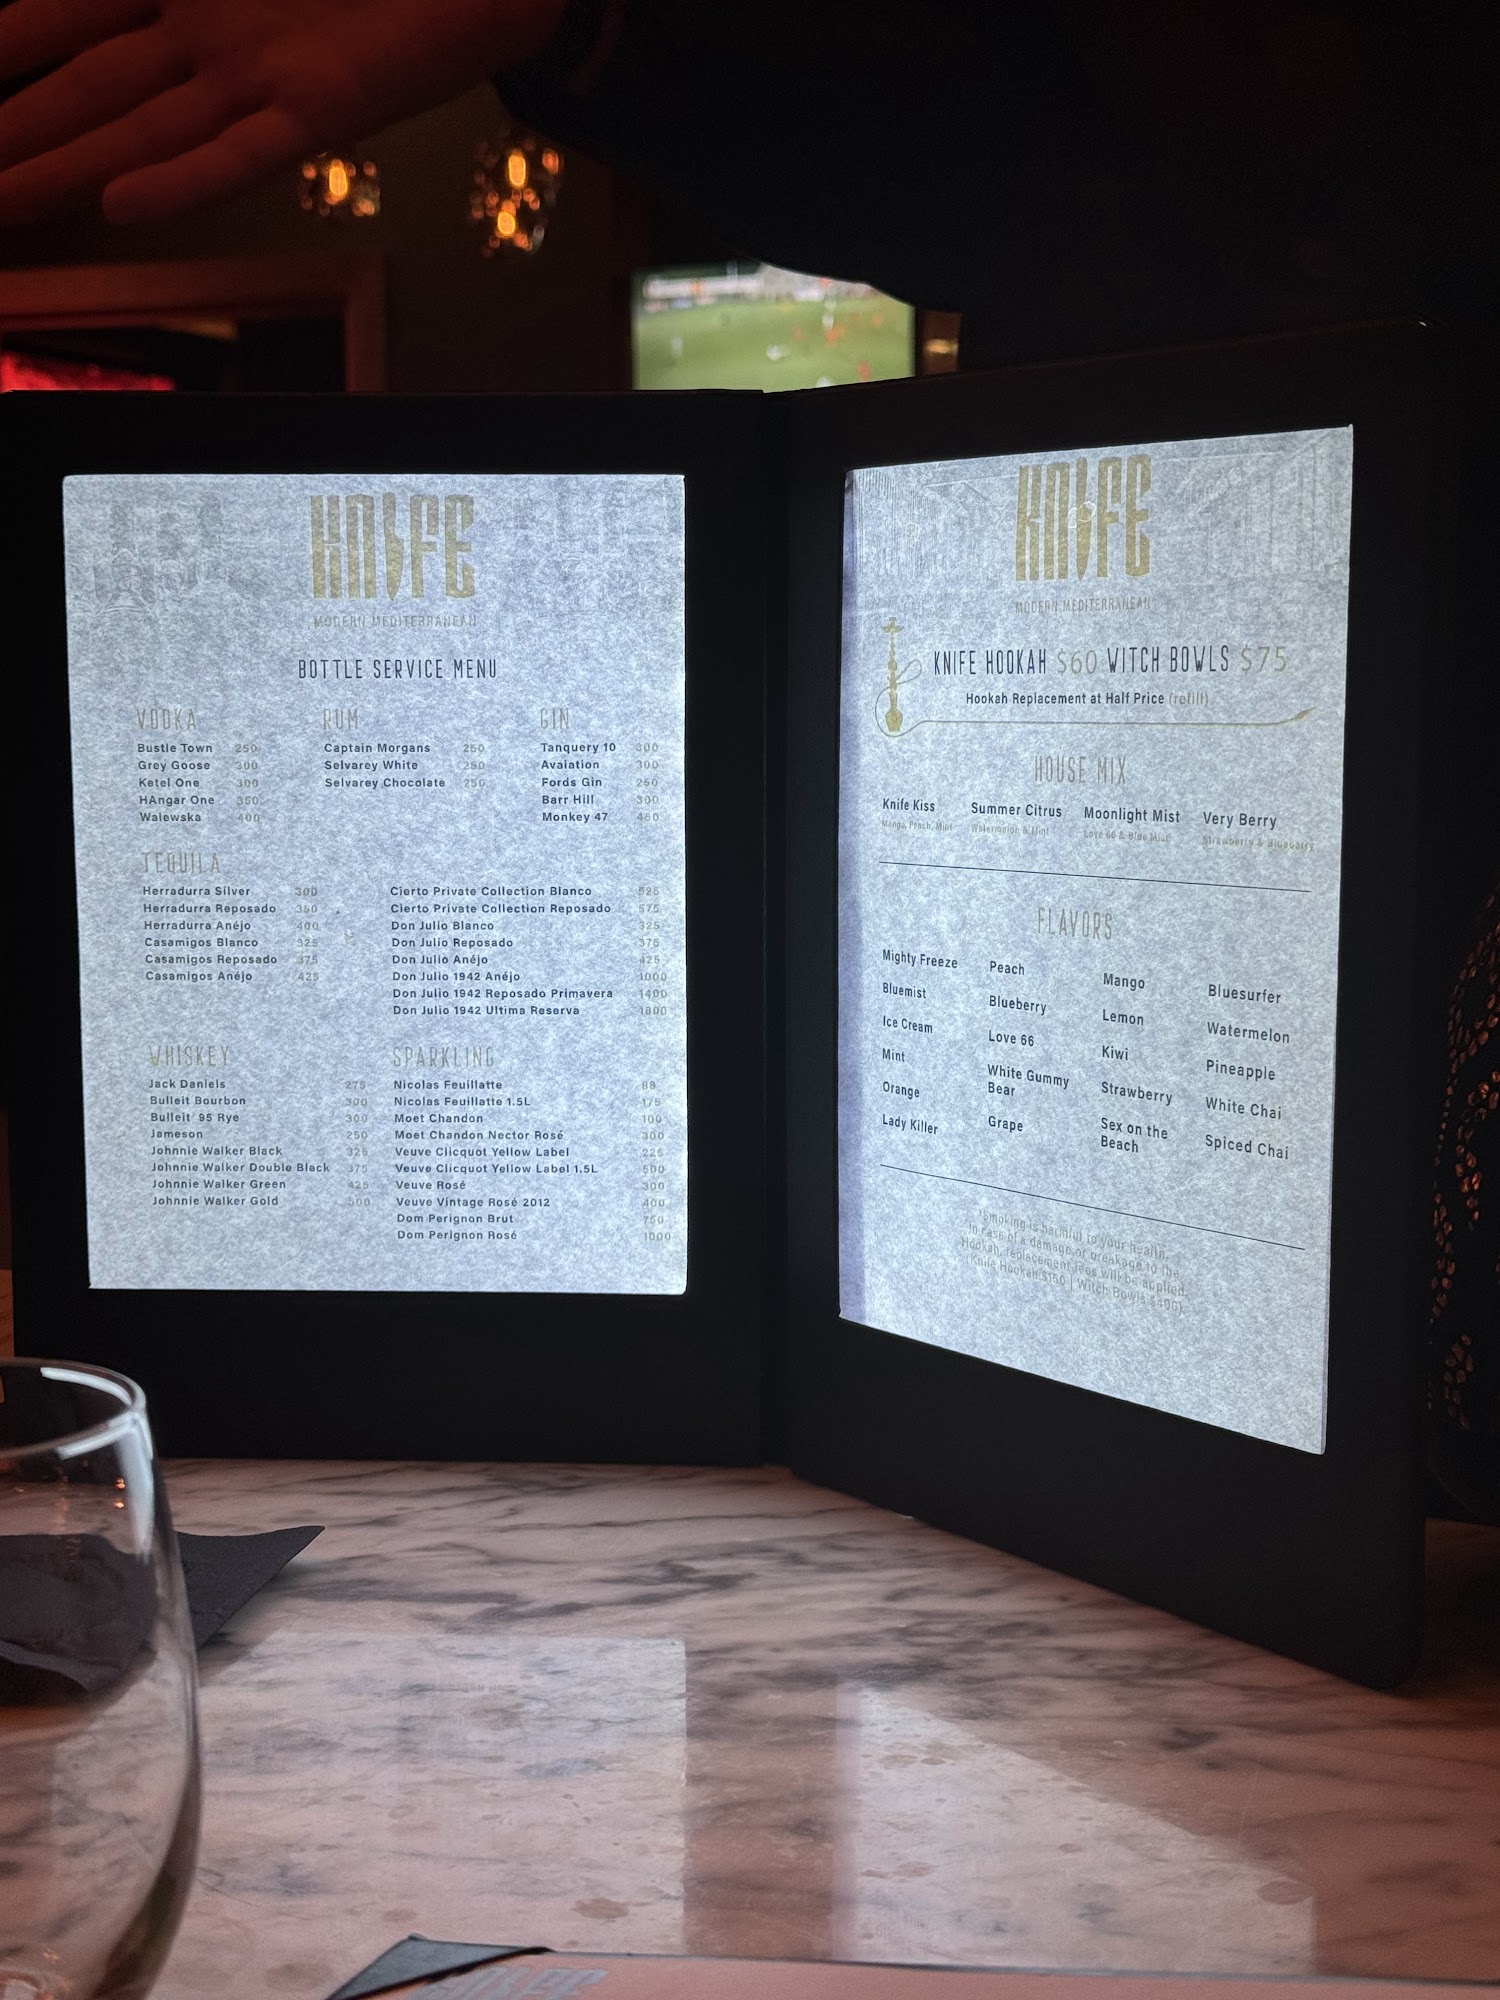 KNIFE
MODERN MEDITERRANEAN
BOTTLE SERVICE MENU
VODKA
Bustle Town 250
Grey Goose 300
Ketel One 300
HAngar One 350
Walewska 400
RUM
Captain Morgans 250
Selvarey White 250
Selvarey Chocolate 250
GIN
Tanquery 10 300
Avaiation 300
Fords Gin 250
Barr Hill 300
Monkey 47 450
TEQUILA
Herradurra Silver 300
Herradurra Reposado 350
Herradurra Anéjo 400
Casamigos Blanco 325
Casamigos Reposado 375
Casamigos Anéjo 425
Cierto Private Collection Blanco 525
Cierto Private Collection Reposado 575
Don Julio Blanco 325
Don Julio Reposado 375
Don Julio Anéjo 425
Don Julio 1942 Anéjo 1000
Don Julio 1942 Reposado Primavera 1400
Don Julio 1942 Ultima Reserva 1800
WHISKEY
Jack Daniels 275
Bulleit Bourbon 300
Bulleit 95 Rye 300
Jameson 250
Johnnie Walker Black 325
Johnnie Walker Double Black 375
Johnnie Walker Green 425
Johnnie Walker Gold 500
SPARKLING
Nicolas Feuillatte 88
Nicolas Feuillatte 1.5L 175
Moet Chandon 100
Moet Chandon Nector Rosé 300
Veuve Clicquot Yellow Label 225
Veuve Clicquot Yellow Label 1.5L 500
Veuve Rosé 300
Veuve Vintage Rosé 2012 400
Dom Perignon Brut 750
Dom Perignon Rosé 1000
KNIFE
MODERN MEDITERRANEAN
KNIFE HOOKAH $60 WITCH BOWLS $75
Hookah Replacement at Half Price (refill)
HOUSE MIX
Knife Kiss
Mango, Peach, Mint
Summer Citrus
Watermelon & Mint
Moonlight Mist
Love 66 & Blue Mist
Very Berry
Strawberry & Blueberry
FLAVORS
Mighty Freeze
Bluemist
Ice Cream
Mint
Orange
Lady Killer
Peach
Blueberry
Love 66
White Gummy
Bear
Grape
Mango
Lemon
Kiwi
Strawberry
Sex on the
Beach
Bluesurfer
Watermelon
Pineapple
White Chai
Spiced Chai
*Smoking is harmful to your health.
In case of a damage or breakage to the
Hookah, replacement fees will be applied.
(Knife Hookah $150 | Witch Bowls $400)